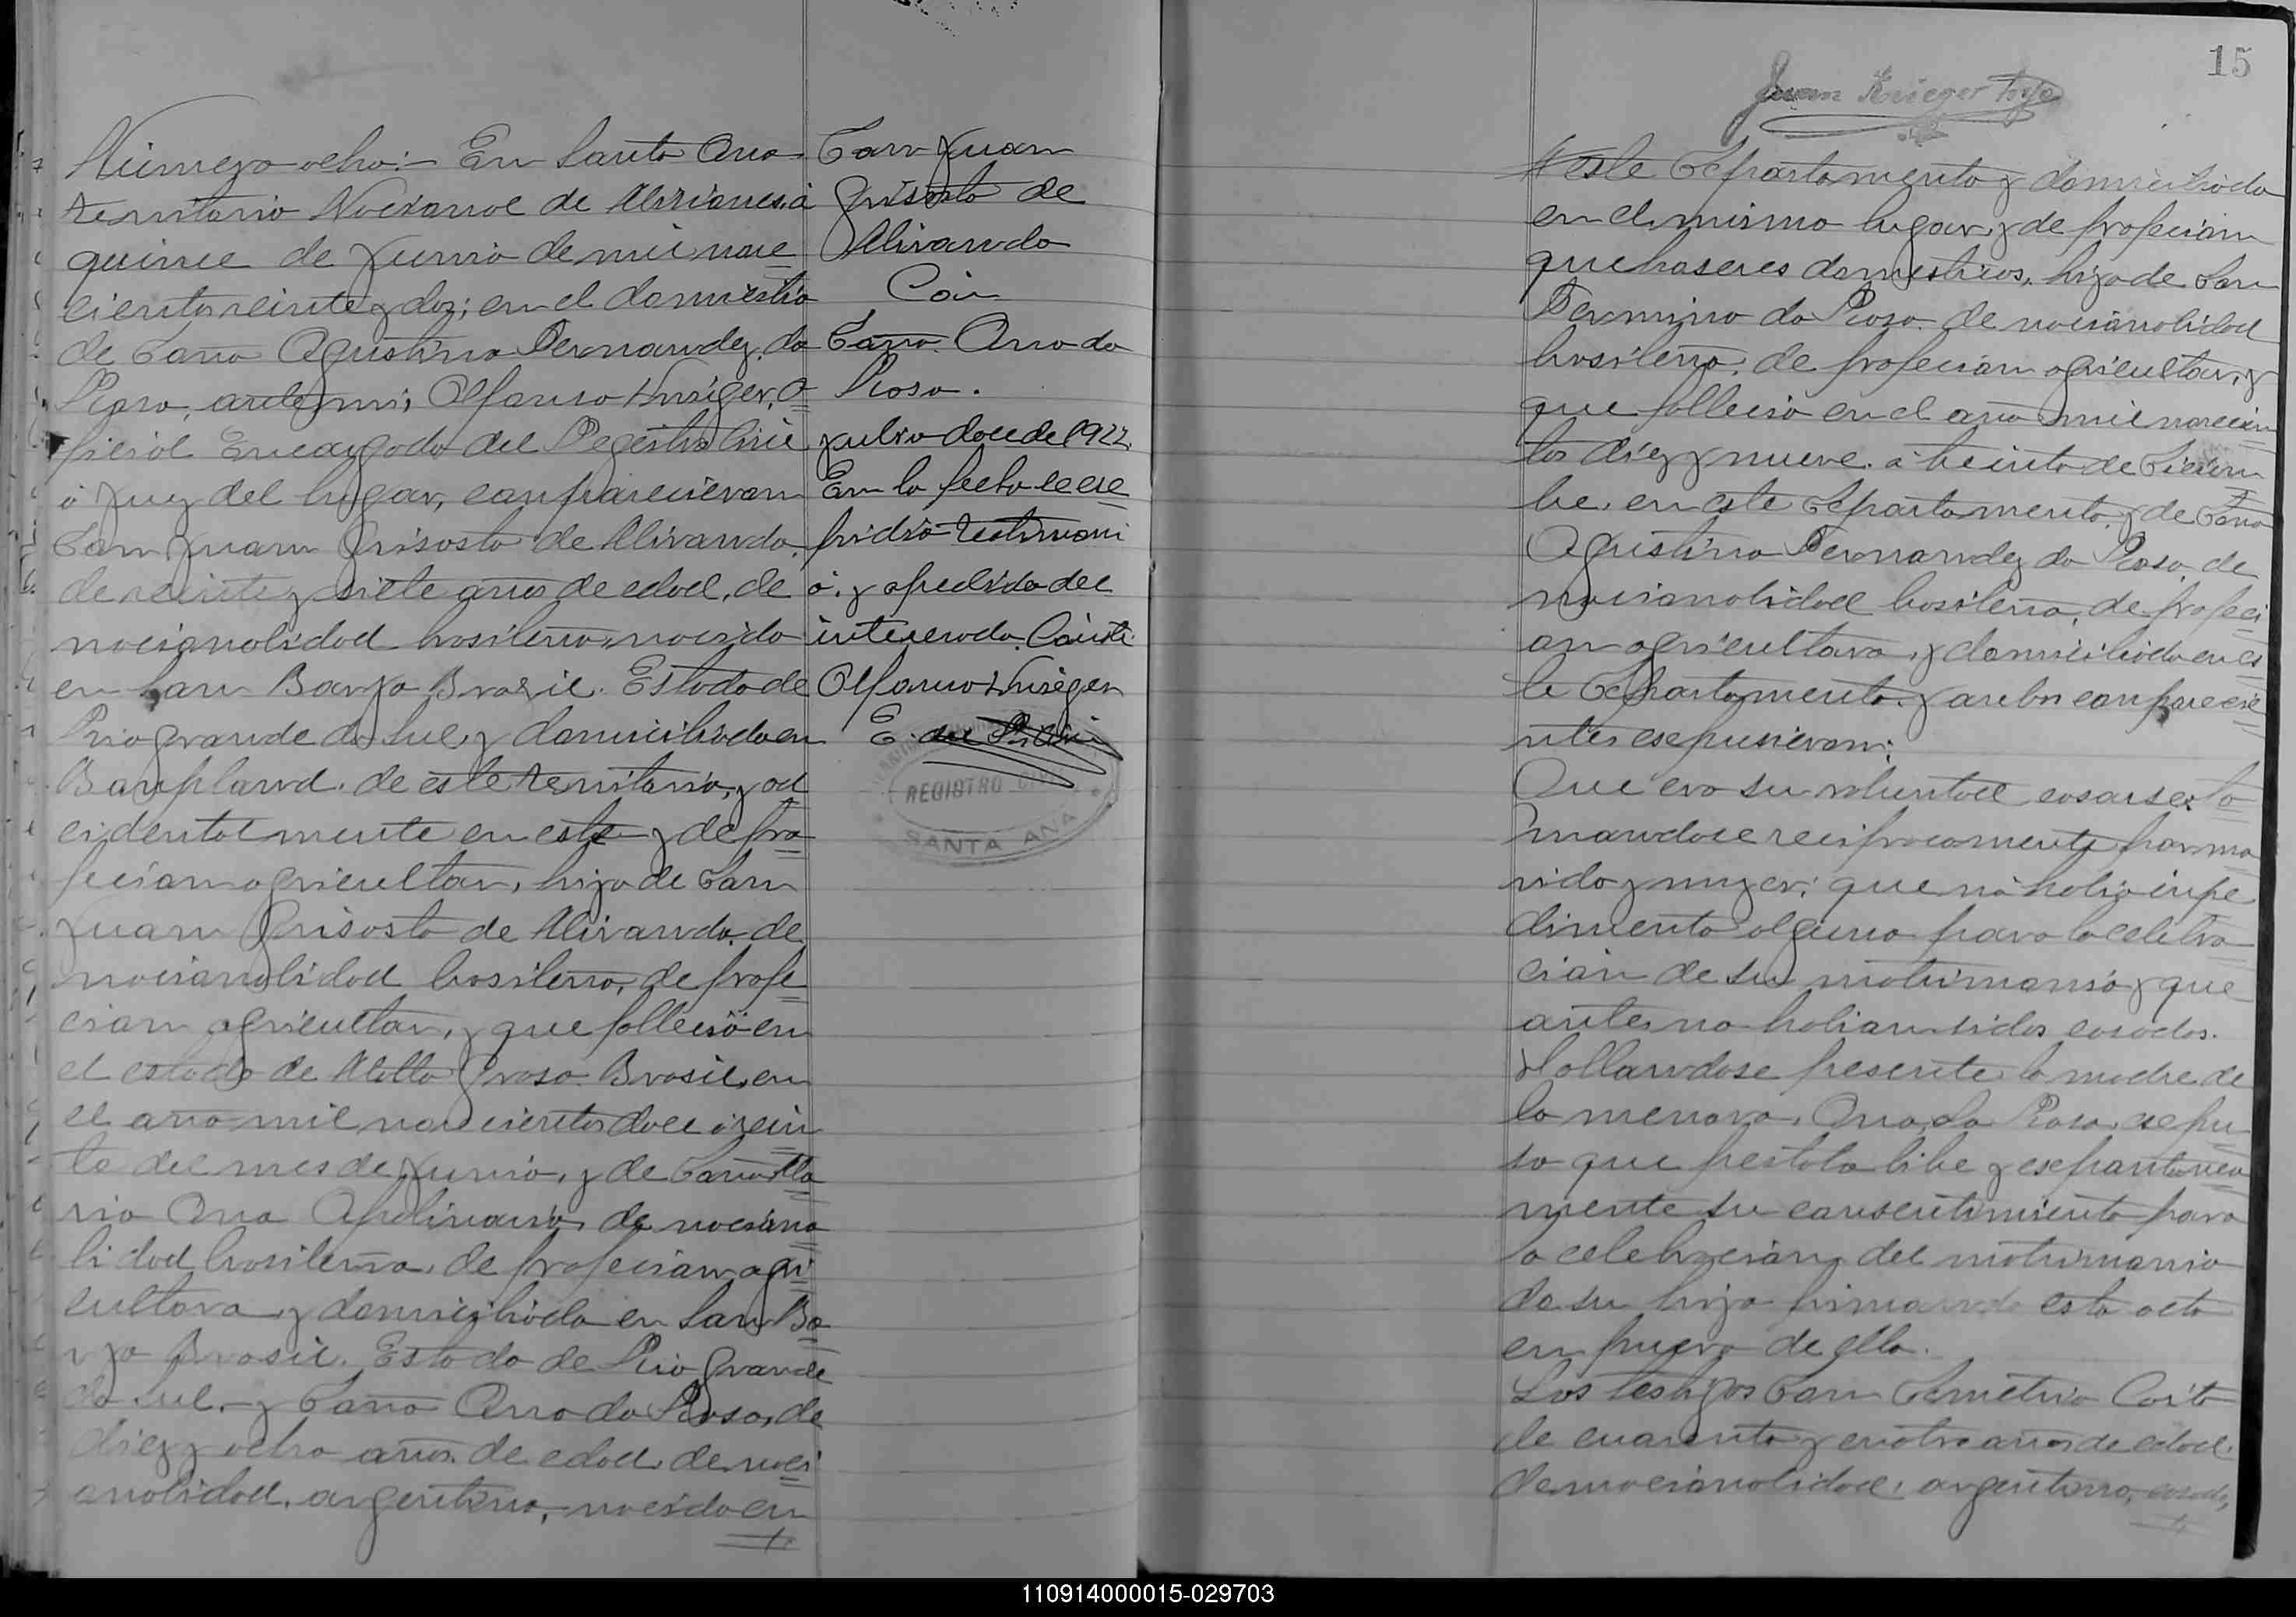 Número ocho:- En Santa Ana
territorio Nacional de Misiones, á
quince de Junio de mil nove
cientos veinte y dos; en el domicilio
de Doña Agustina Fernandez da
Rosa, ante mi, Alfonso Krieger, o
ficial Encargado del Registro Civil
ó Juez del lugar, comparecieron
Don Juan Grisosto de Miranda,
de veinte y siete años de edad, de
nacionalidad brasilera, nacido
en San Borja Brazil. Estado de
Rio grande do Sul, y domiciliado en
Bonpland. de este territorio, y ac
cidentalmente en este y de pro
fecion agricultor, hijo de Don
Juan Grisosto de Miranda. de
nacionalidad brasilera, de profe
cion agricultor, y que falleció en
el estado de Matto Groso. Brasil, en
el año mil novecientos doce á vein
te del mes de Junio, y de Doña Ma
ria Ana Apolinaria, de naciona
lidad brasilera, de profecion agri
cultora y domiciliada en San Bo
rja Brasil. Estado de Rio Grande
do Sul. y Doña Ana da Rosa, de
diez y ocho años de edad, de naci
onalidad, argentina, nacida en
Don Juan
Grisosto de
Miranda
Con
Doña. Ana da
Rosa.
Julio doce de 1922.
En la fecha se ex
pidió testimoni
o. y a pedido del
interesado. Conste
Alfonso Krieger
E. del R. Civil
REGISTRO CIVIL
SANTA ANA
15
Juan Krieger
este Departamento y domiciliada
en el mismo lugar, y de profecion
quehaseres domesticos, hija de Don
Fermino da Rosa. de nacionalidad
brasilera, de profecion agricultor, y
que fallecio en el año mil novecien
tos diez y nueve. á treinta de Diciem
bre, en este Departamento, y de Doña
Agustina Fernandez da Rosa, de
nacionalidad brasilera, de profeci
on agricultora, y domiciliada en es
te Departamento. y ambos comparecie
ntes expusieron:
Que era su voluntad casarse, to
mandose reciprocamente por ma
rido y mujer; que nó habia inpe
dimento alguno para la celebra
ción de su matrimonio y que
antes no habian sidos casados.
Hallandose presente la madre de
la menora, Ana da Rosa, expu
so que prestaba libre y espontanea
mente su consentimiento para
la celebracion del matrimonio
de su hija firmando esta acta
en prueva de ello.
Los testigos Don Demetrio
de cuarenta y cuatro años de edad.
de nacionalidad, argentina, casado,